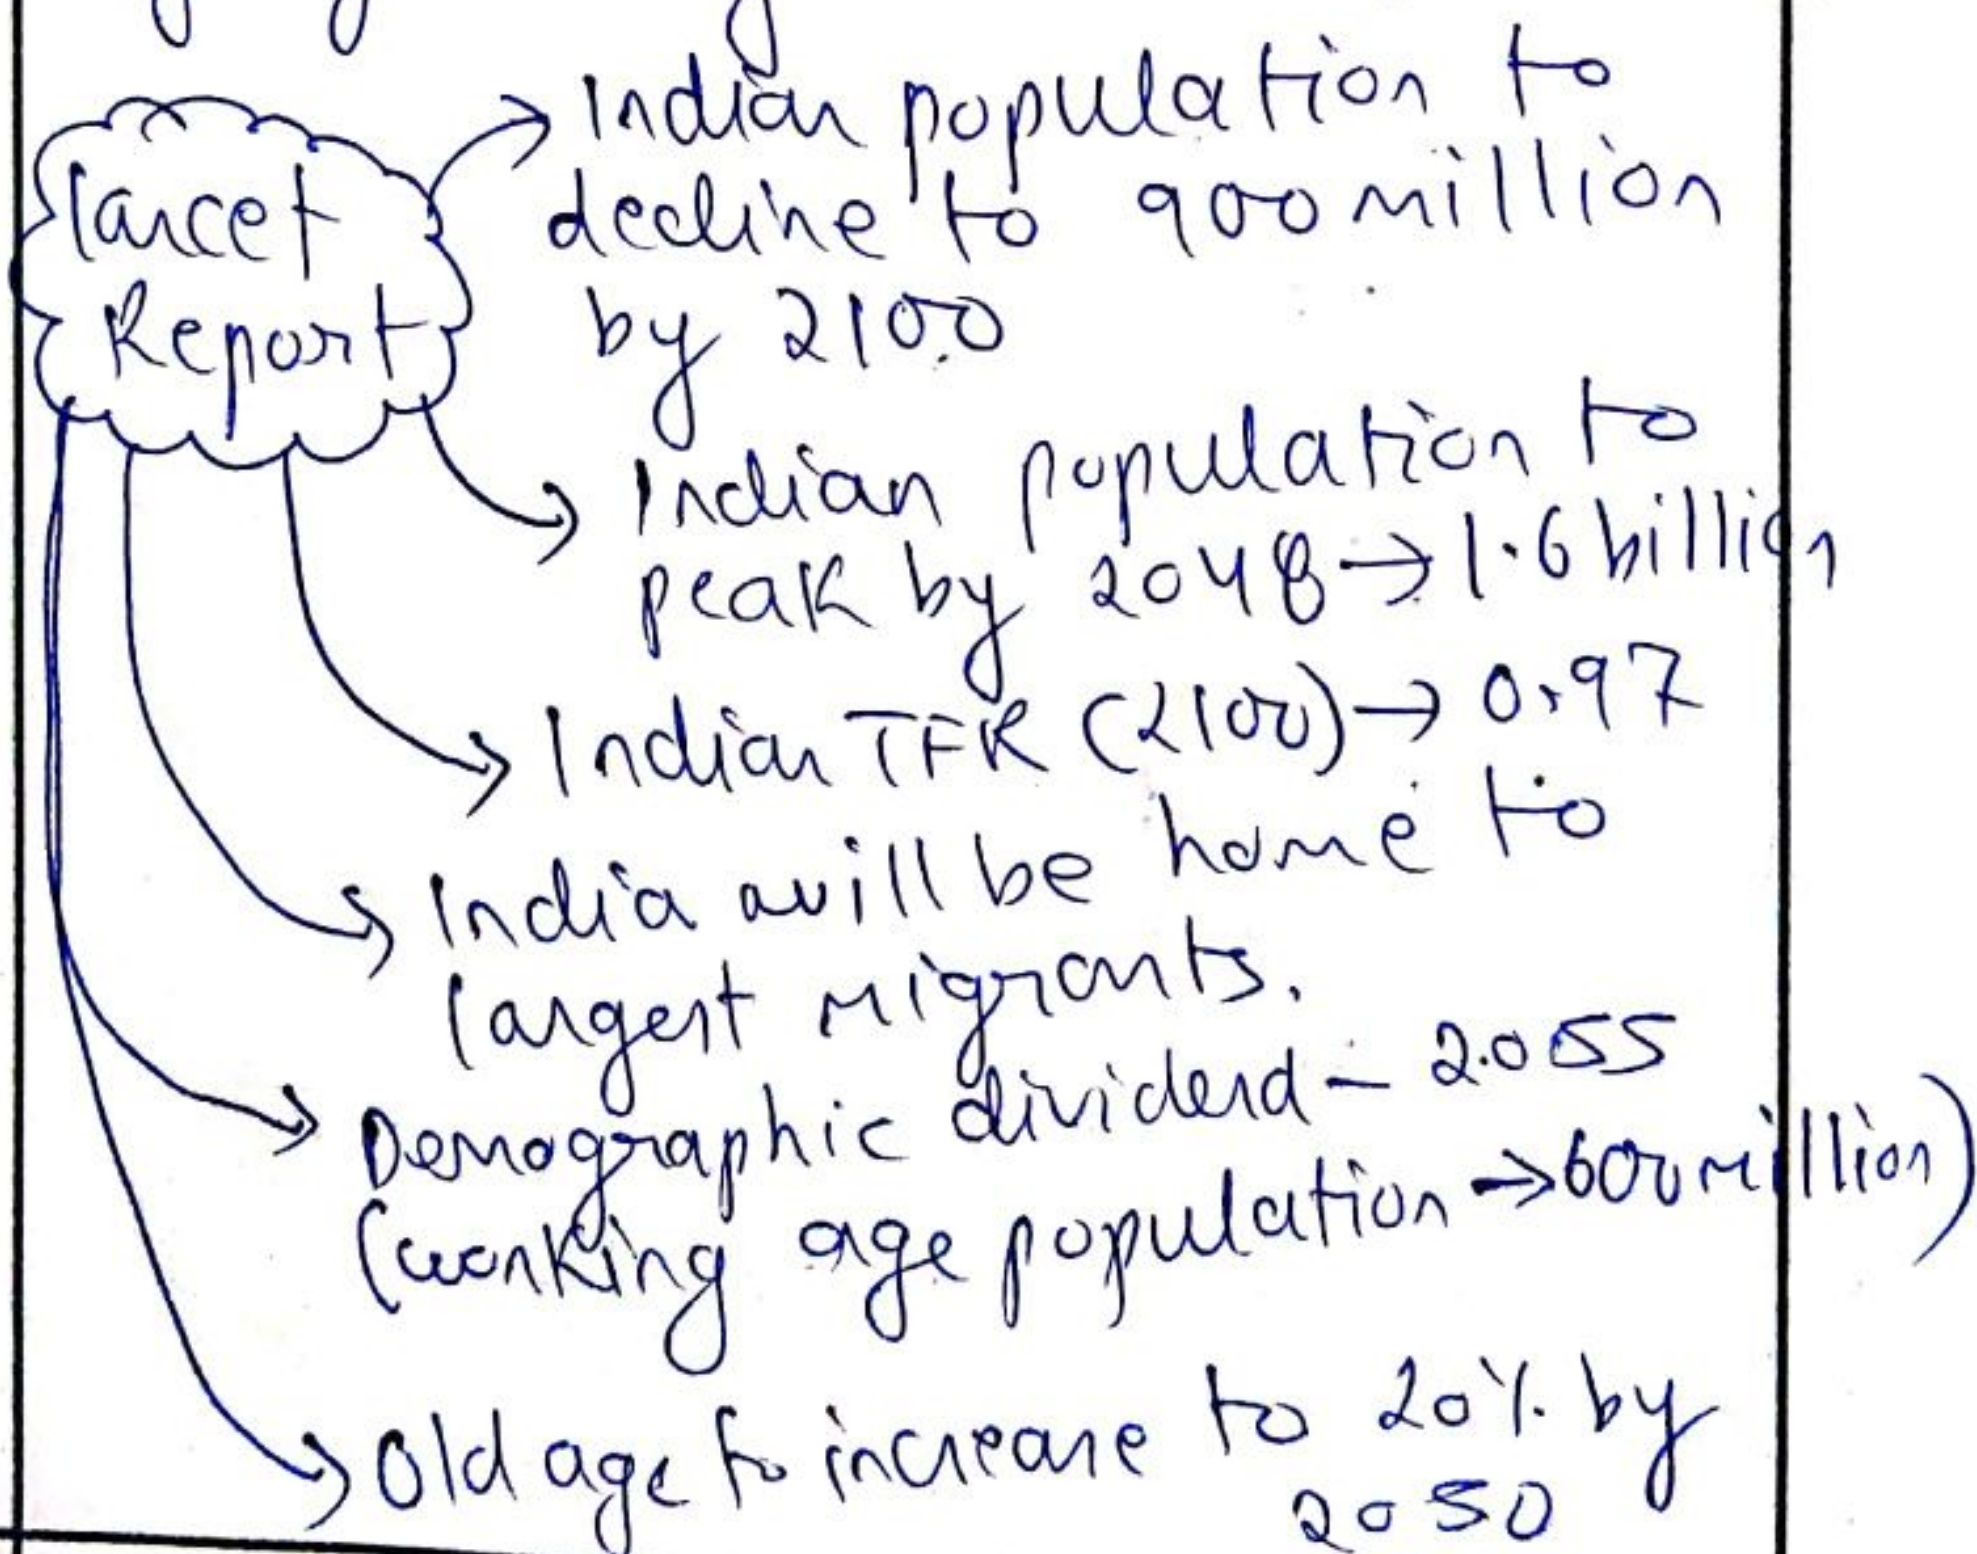 Lancet
Report
Indian population to
decline to 900 million
by 2100
Indian population to
peak by 2048 → 1.6 billion
Indian TFR (2100) → 0.97
India will be home to
largest migrants.
Demographic dividend - 2055
(working age population → 600 million)
Old age to increase to 20% by
2050